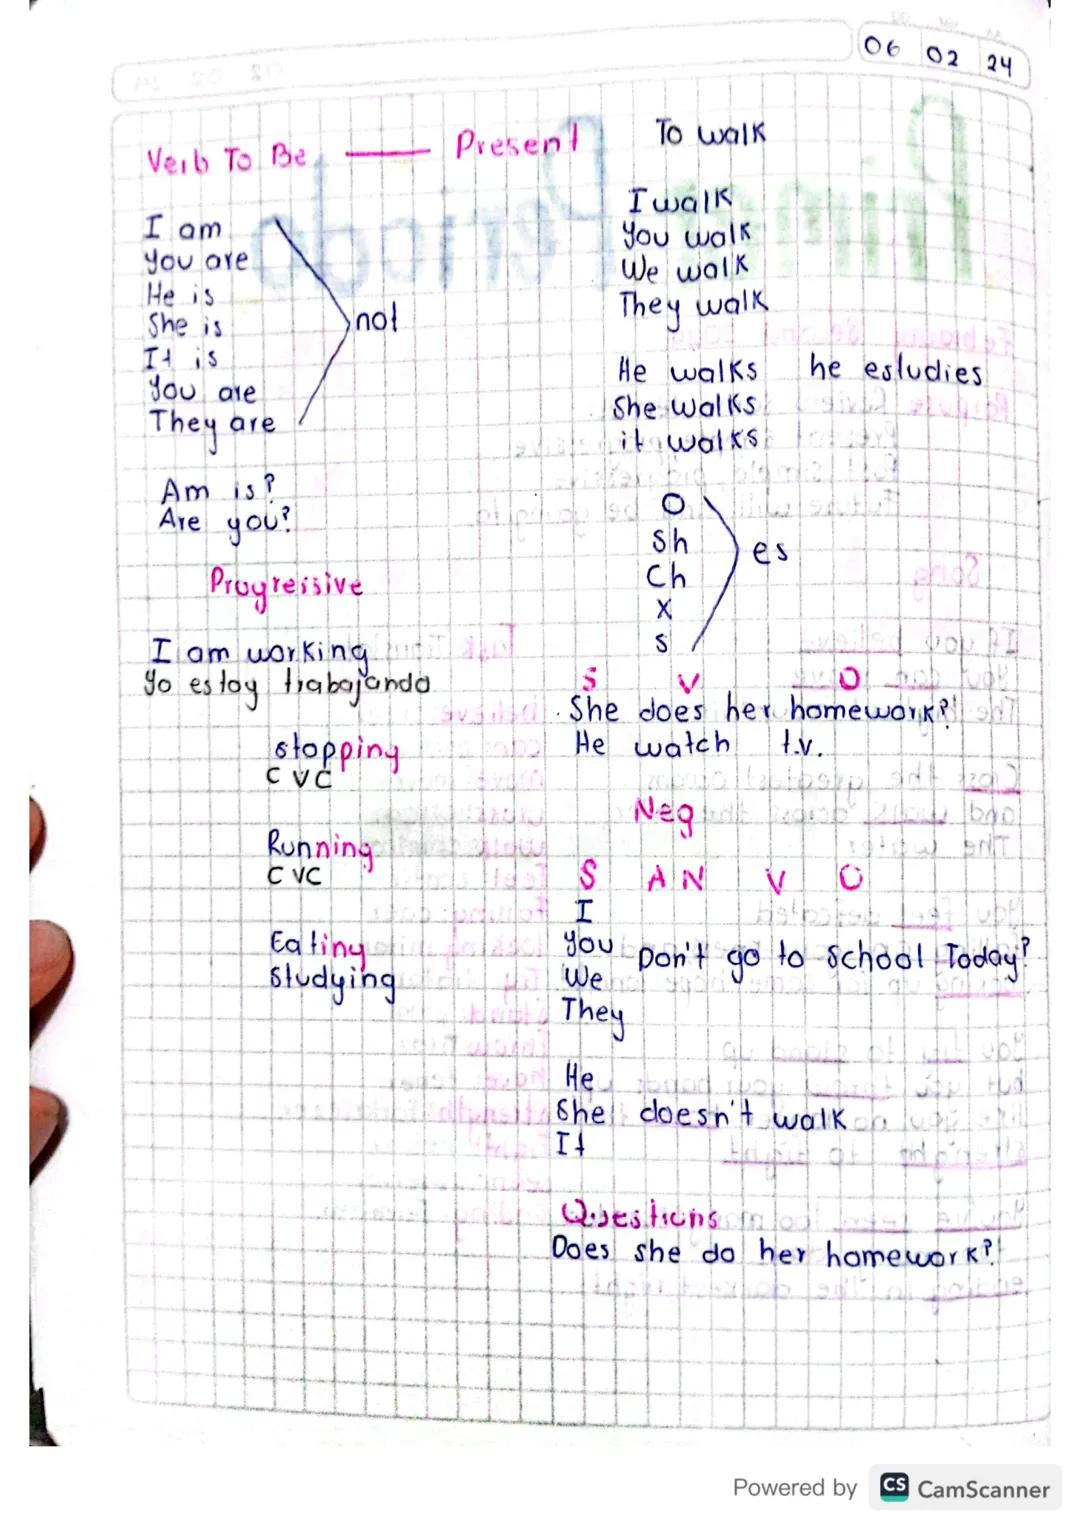 06 02 24
Verb To Be — Present
I am
You are
He is
She is
It is
You are
They are
not
Am is?
Are you?
Progressive
I am working
Yo estoy trabajando
stopping
C V C
Running
C VC
Eating
Studying
To walk
I walk
You walk
We walk
They walk
He walks he estudies
She walks
it walks
O
Sh
Ch
X
S
es
S V O
She does her homework?
He watch t.v.
Neg
S A N V O
I
You
We
They
Don't go to School Today?
He
She doesn't walk
It
Questions
Does she do her homework?
Powered by CS CamScanner